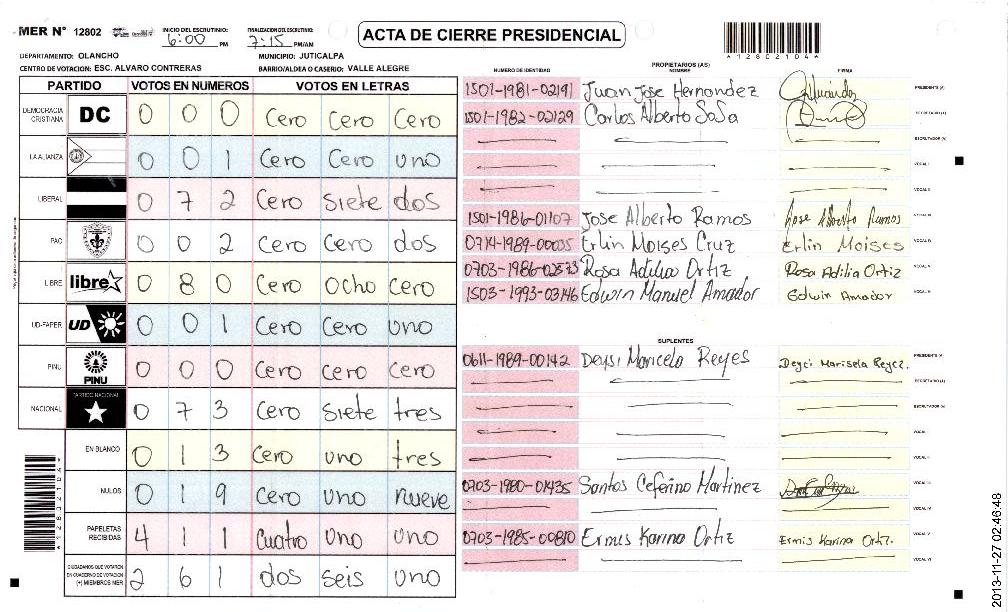 MER N° 12802 INICIO DEL ESCRUTINIO: 6:00 PM FINALIZACION DEL ESCRUTINIO: 7:15 PM/AM
ACTA DE CIERRE PRESIDENCIAL
*12802104*
DEPARTAMENTO: OLANCHO MUNICIPIO: JUTICALPA
CENTRO DE VOTACION: ESC. ALVARO CONTRERAS BARRIO/ALDEA O CASERIO: VALLE ALEGRE
PARTIDO VOTOS EN NUMEROS VOTOS EN LETRAS
DEMOCRACIA CRISTIANA DC 0 0 0 Cero Cero Cero
LA ALIANZA 0 0 1 Cero Cero uno
LIBERAL 0 7 2 Cero Siete dos
PAC 0 0 2 Cero Cero dos
LIBRE libre 0 8 0 Cero Ocho Cero
UD-FAPER UD 0 0 1 Cero Cero uno
PINU PINU 0 0 0 Cero Cero Cero
NACIONAL PARTIDO NACIONAL 0 7 3 Cero Siete tres
EN BLANCO 0 1 3 Cero uno tres
NULOS 0 1 9 Cero uno nueve
PAPELETAS RECIBIDAS 4 1 1 Cuatro uno uno
CIUDADANOS QUE VOTARON EN CUADERNO DE VOTACION (+) MIEMBROS MER 2 6 1 dos seis uno
PROPIETARIOS (AS)
NUMERO DE IDENTIDAD NOMBRE FIRMA
1501-1981-02191 Juan Jose Hernandez PRESIDENTE (A)
1501-1982-02129 Carlos Alberto Sosa SECRETARIO (A)
ESCRUTADOR (A)
VOCAL I
VOCAL II
1501-1986-01107 Jose Alberto Ramos Jose Alberto Ramos VOCAL III
0714-1989-00035 Erlin Moises Cruz Erlin Moises VOCAL IV
0703-1986-02373 Rosa Adilia Ortiz Rosa Adilia Ortiz VOCAL V
1503-1993-03146 Edwin Manuel Amador Edwin Amador VOCAL VI
SUPLENTES
0611-1989-00142 Deysi Maricela Reyes Deyci Marisela Reyez. PRESIDENTE (A)
SECRETARIO (A)
ESCRUTADOR (A)
VOCAL I
VOCAL II
0703-1980-01435 Santos Ceferino Martinez VOCAL III
VOCAL IV
0703-1985-00810 Ermis Karina Ortiz Ermis Karina Ortiz. VOCAL V
VOCAL VI
2013-11-27 02:46:48